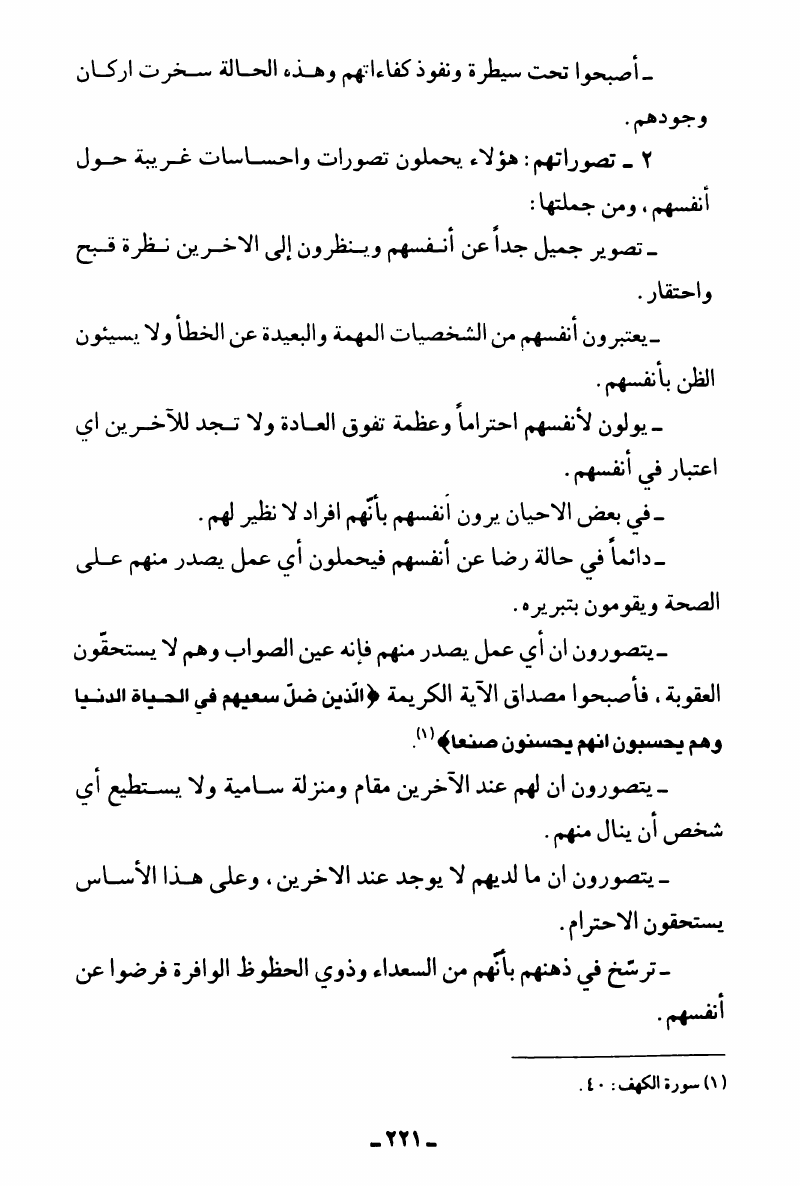 ـ أصبحوا تحت سيطرة ونفوذ كفاءاتهم وهذه الحالة سخرت اركان
وجودهم .
٢ ـ تصوراتهم : هؤلاء يحملون تصورات واحساسات غريبة حول
أنفسهم ، ومن جملتها :
ـ تصوير جميل جداً عن أنفسهم وينظرون إلى الاخرين نظرة قبح
واحتقار .
ـ يعتبرون أنفسهم من الشخصيات المهمة والبعيدة عن الخطأ ولا يسيئون
الظن بأنفسهم .
ـ يولون لأنفسهم احتراماً وعظمة تفوق العادة ولا تجد للآخرين اي
اعتبار في أنفسهم .
ـ في بعض الاحيان يرون أنفسهم بأنّهم افراد لا نظير لهم .
ـ دائماً في حالة رضا عن أنفسهم فيحملون أي عمل يصدر منهم على
الصحة ويقومون بتبريره .
ـ يتصورون ان أي عمل يصدر منهم فإنه عين الصواب وهم لا يستحقّون
العقوبة ، فأصبحوا مصداق الآية الكريمة ﴿الّذين ضلّ سعيهم في الحياة الدنيا
وهم يحسبون انهم يحسنون صنعا﴾(١).
ـ يتصورون ان لهم عند الآخرين مقام ومنزلة سامية ولا يستطيع أي
شخص أن ينال منهم .
ـ يتصورون ان ما لديهم لا يوجد عند الاخرين ، وعلى هذا الأساس
يستحقون الاحترام .
ـ ترسّخ في ذهنهم بأنّهم من السعداء وذوي الحظوظ الوافرة فرضوا عن
أنفسهم .
(١) سورة الكهف : ٤٠ .
ـ ٢٢١ ـ